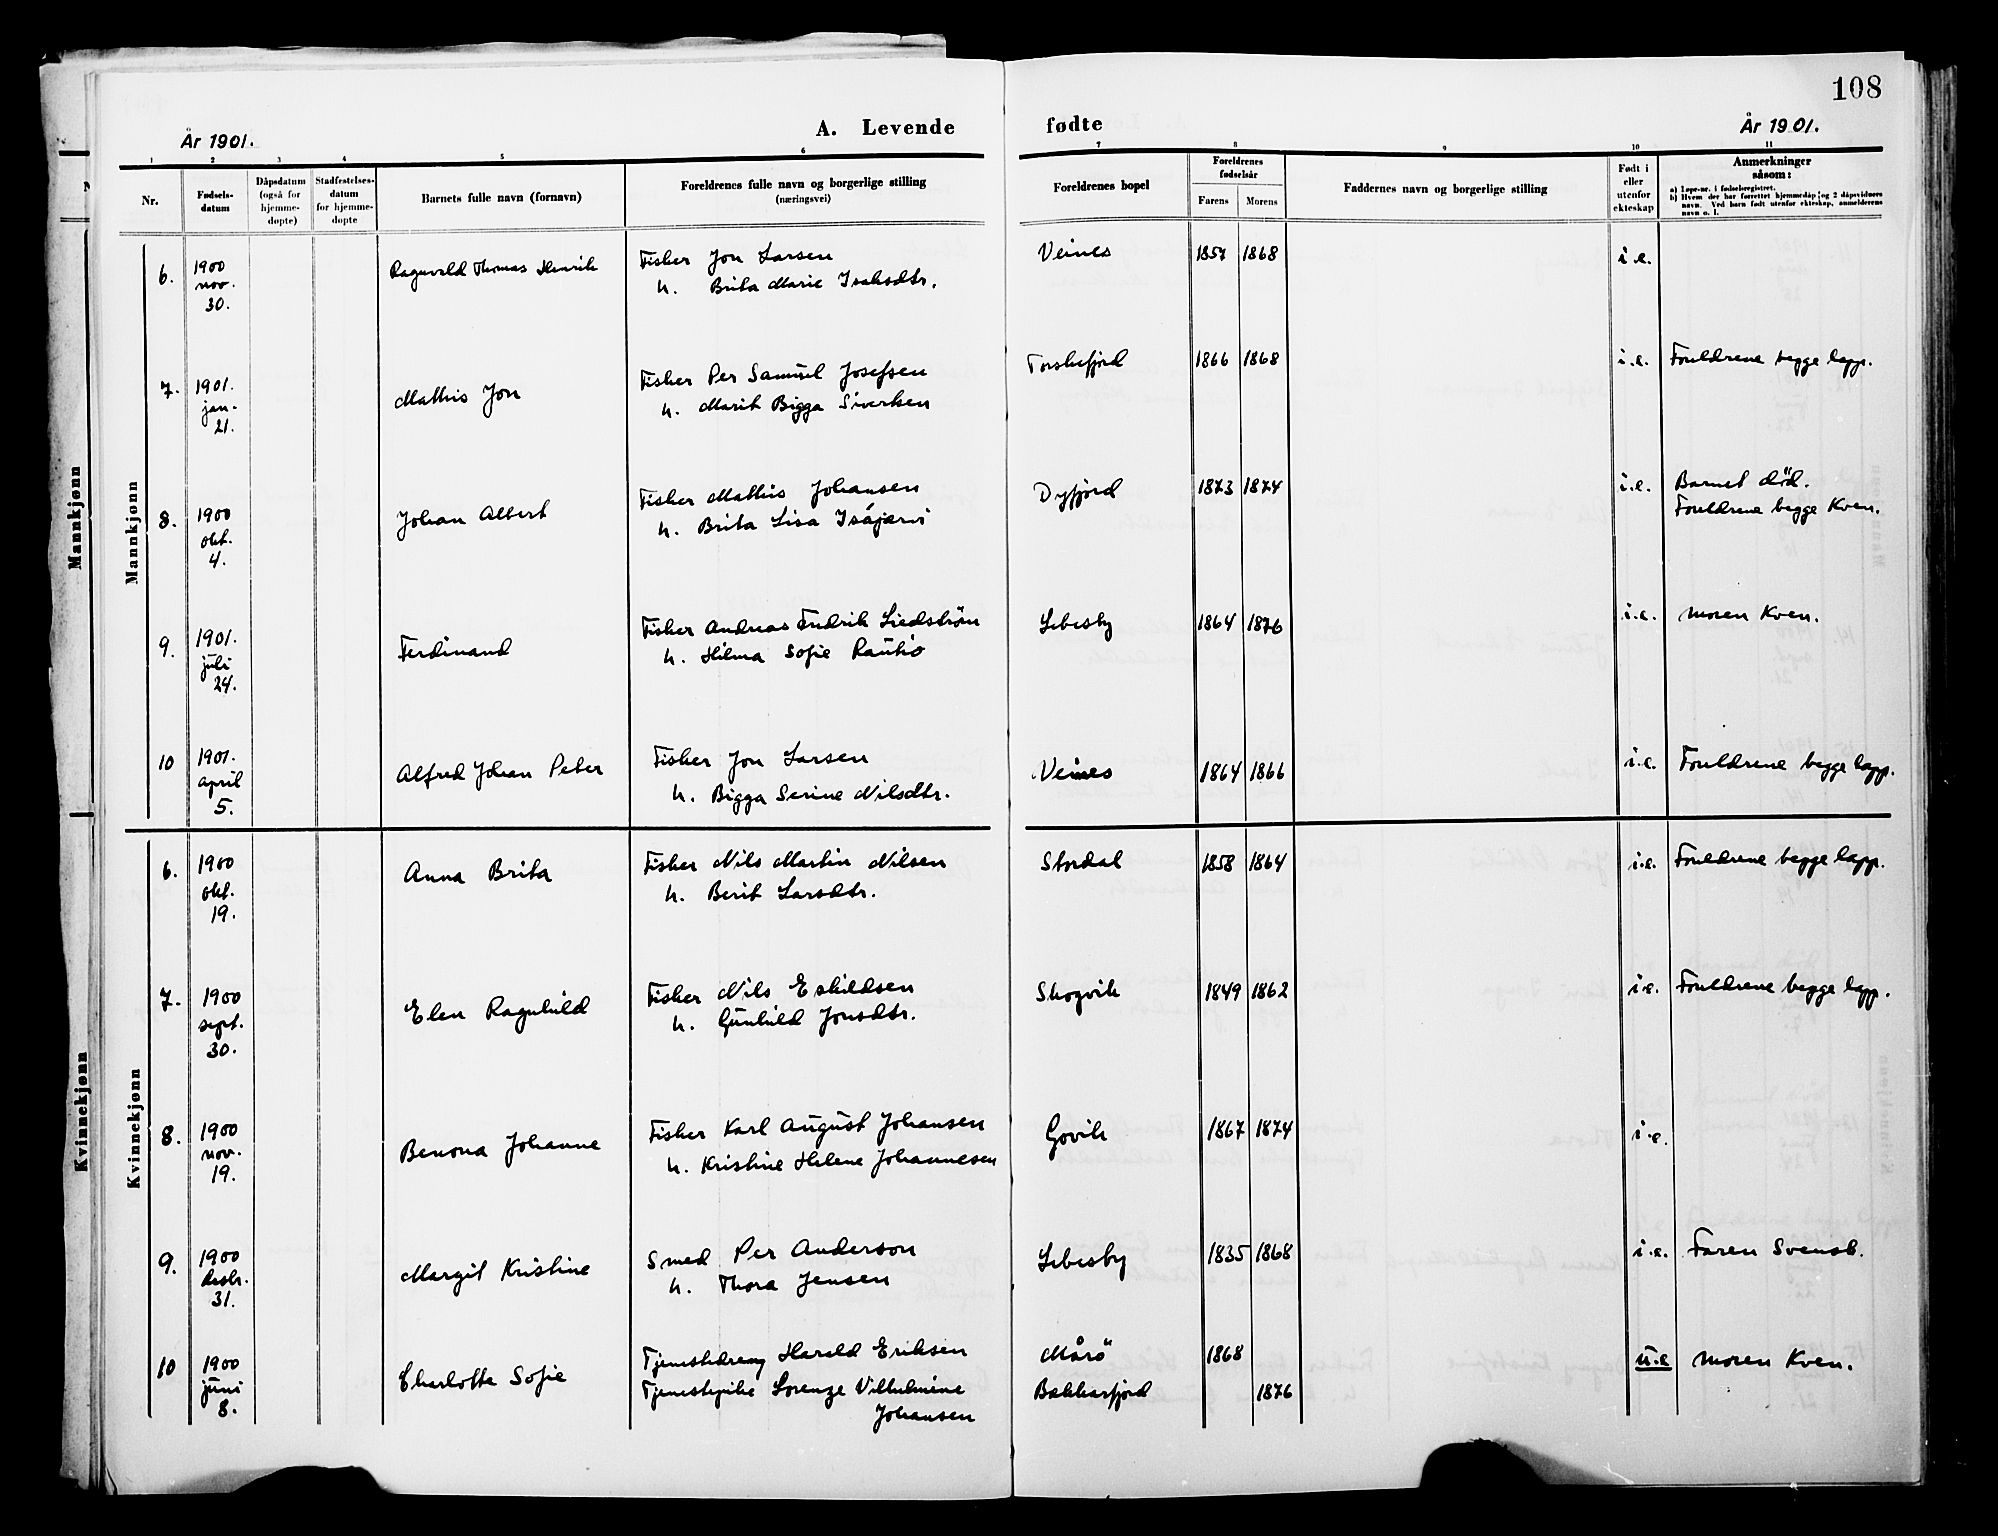 108
År 1901.
A. Levende fødte
År 1901.
1 2 3 4 5 6 7 8 9 10 11
Nr.
Fødsels-
datum
Dåpsdatum
(også for
hjemme-
døpte)
Stadfestelses-
datum
for hjemme-
døpte
Barnets fulle navn (fornavn)
Foreldrenes fulle navn og borgerlige stilling
(næringsvei)
Foreldrenes bopel
Foreldrenes
fødselsår
Farens
Morens
Faddernes navn og borgerlige stilling
Født i
eller
utenfor
ekteskap
Anmerkninger
såsom:
a) Løpe-nr. i fødselsregistret.
b) Hvem der har forrettet hjemmedåp og 2 dåpsvidners
navn. Ved barn født utenfor ekteskap, anmelderens
navn o. l.
Mannkjønn
Mannkjønn
6. 1900 nov. 30. Ragnvald Thomas Henrik
Fisker Jon Larsen
h. Brita Marie Isaksdtr.
Veines 1857 1868 i.e.
7. 1901. jan. 21. Mathis Jon
Fisker Per Samuel Josefsen
h. Marit Bigga Sivertsen
Torskefjord 1866 1868 i.e. Foreldrene begge lapp.
8. 1900 okt. 4. Johan Albert
Fisker Mathis Johansen
h. Brita Lisa Isäjærvi
Dyfjord 1873 1874 i.e. Barnet död.
Foreldrene begge Kven.
9. 1901. juli 24. Ferdinand
Fisker Andreas Fredrik Liedström
h. Hilma Sofie Rautio
Lebesby 1864 1876 i.e. Moren Kven.
10 1901. april 5. Alfred Johan Peter
Fisker Jon Larsen
h. Bigga Serine Nilsdtr.
Veines 1864 1866 i.e. Foreldrene begge lapp.
Kvinnekjønn
Kvinnekjønn
6. 1900 okt. 19. Anna Brita
Fisker Nils Martin Nilsen
h. Berit Larsdtr.
Stordal 1858 1864 i.e. Foreldrene begge lapp.
7. 1900 sept. 30. Elen Ragnhild
Fisker Nils Eskildsen
h. Gunhild Jonsdtr.
Skogvik 1849 1862 i.e. Foreldrene begge lapp.
8. 1900 nov. 19. Benona Johanne
Fisker Karl August Johansen
h. Kristine Helene Johannesen
Govik 1867 1874 i.e.
9. 1900 desbr. 31. Margit Kristine
Smed Per Anderson
h. Thora Jensen
Lebesby 1835 1868 i.e. Faren Svensk.
10 1900 juni 8. Charlotte Sofie
Tjenestedreng Harald Eriksen
Mårö 1868 u.e Moren Kven.
Tjenestepike Lorenze Vilhelmine
Johansen
Bekkarfjord 1876